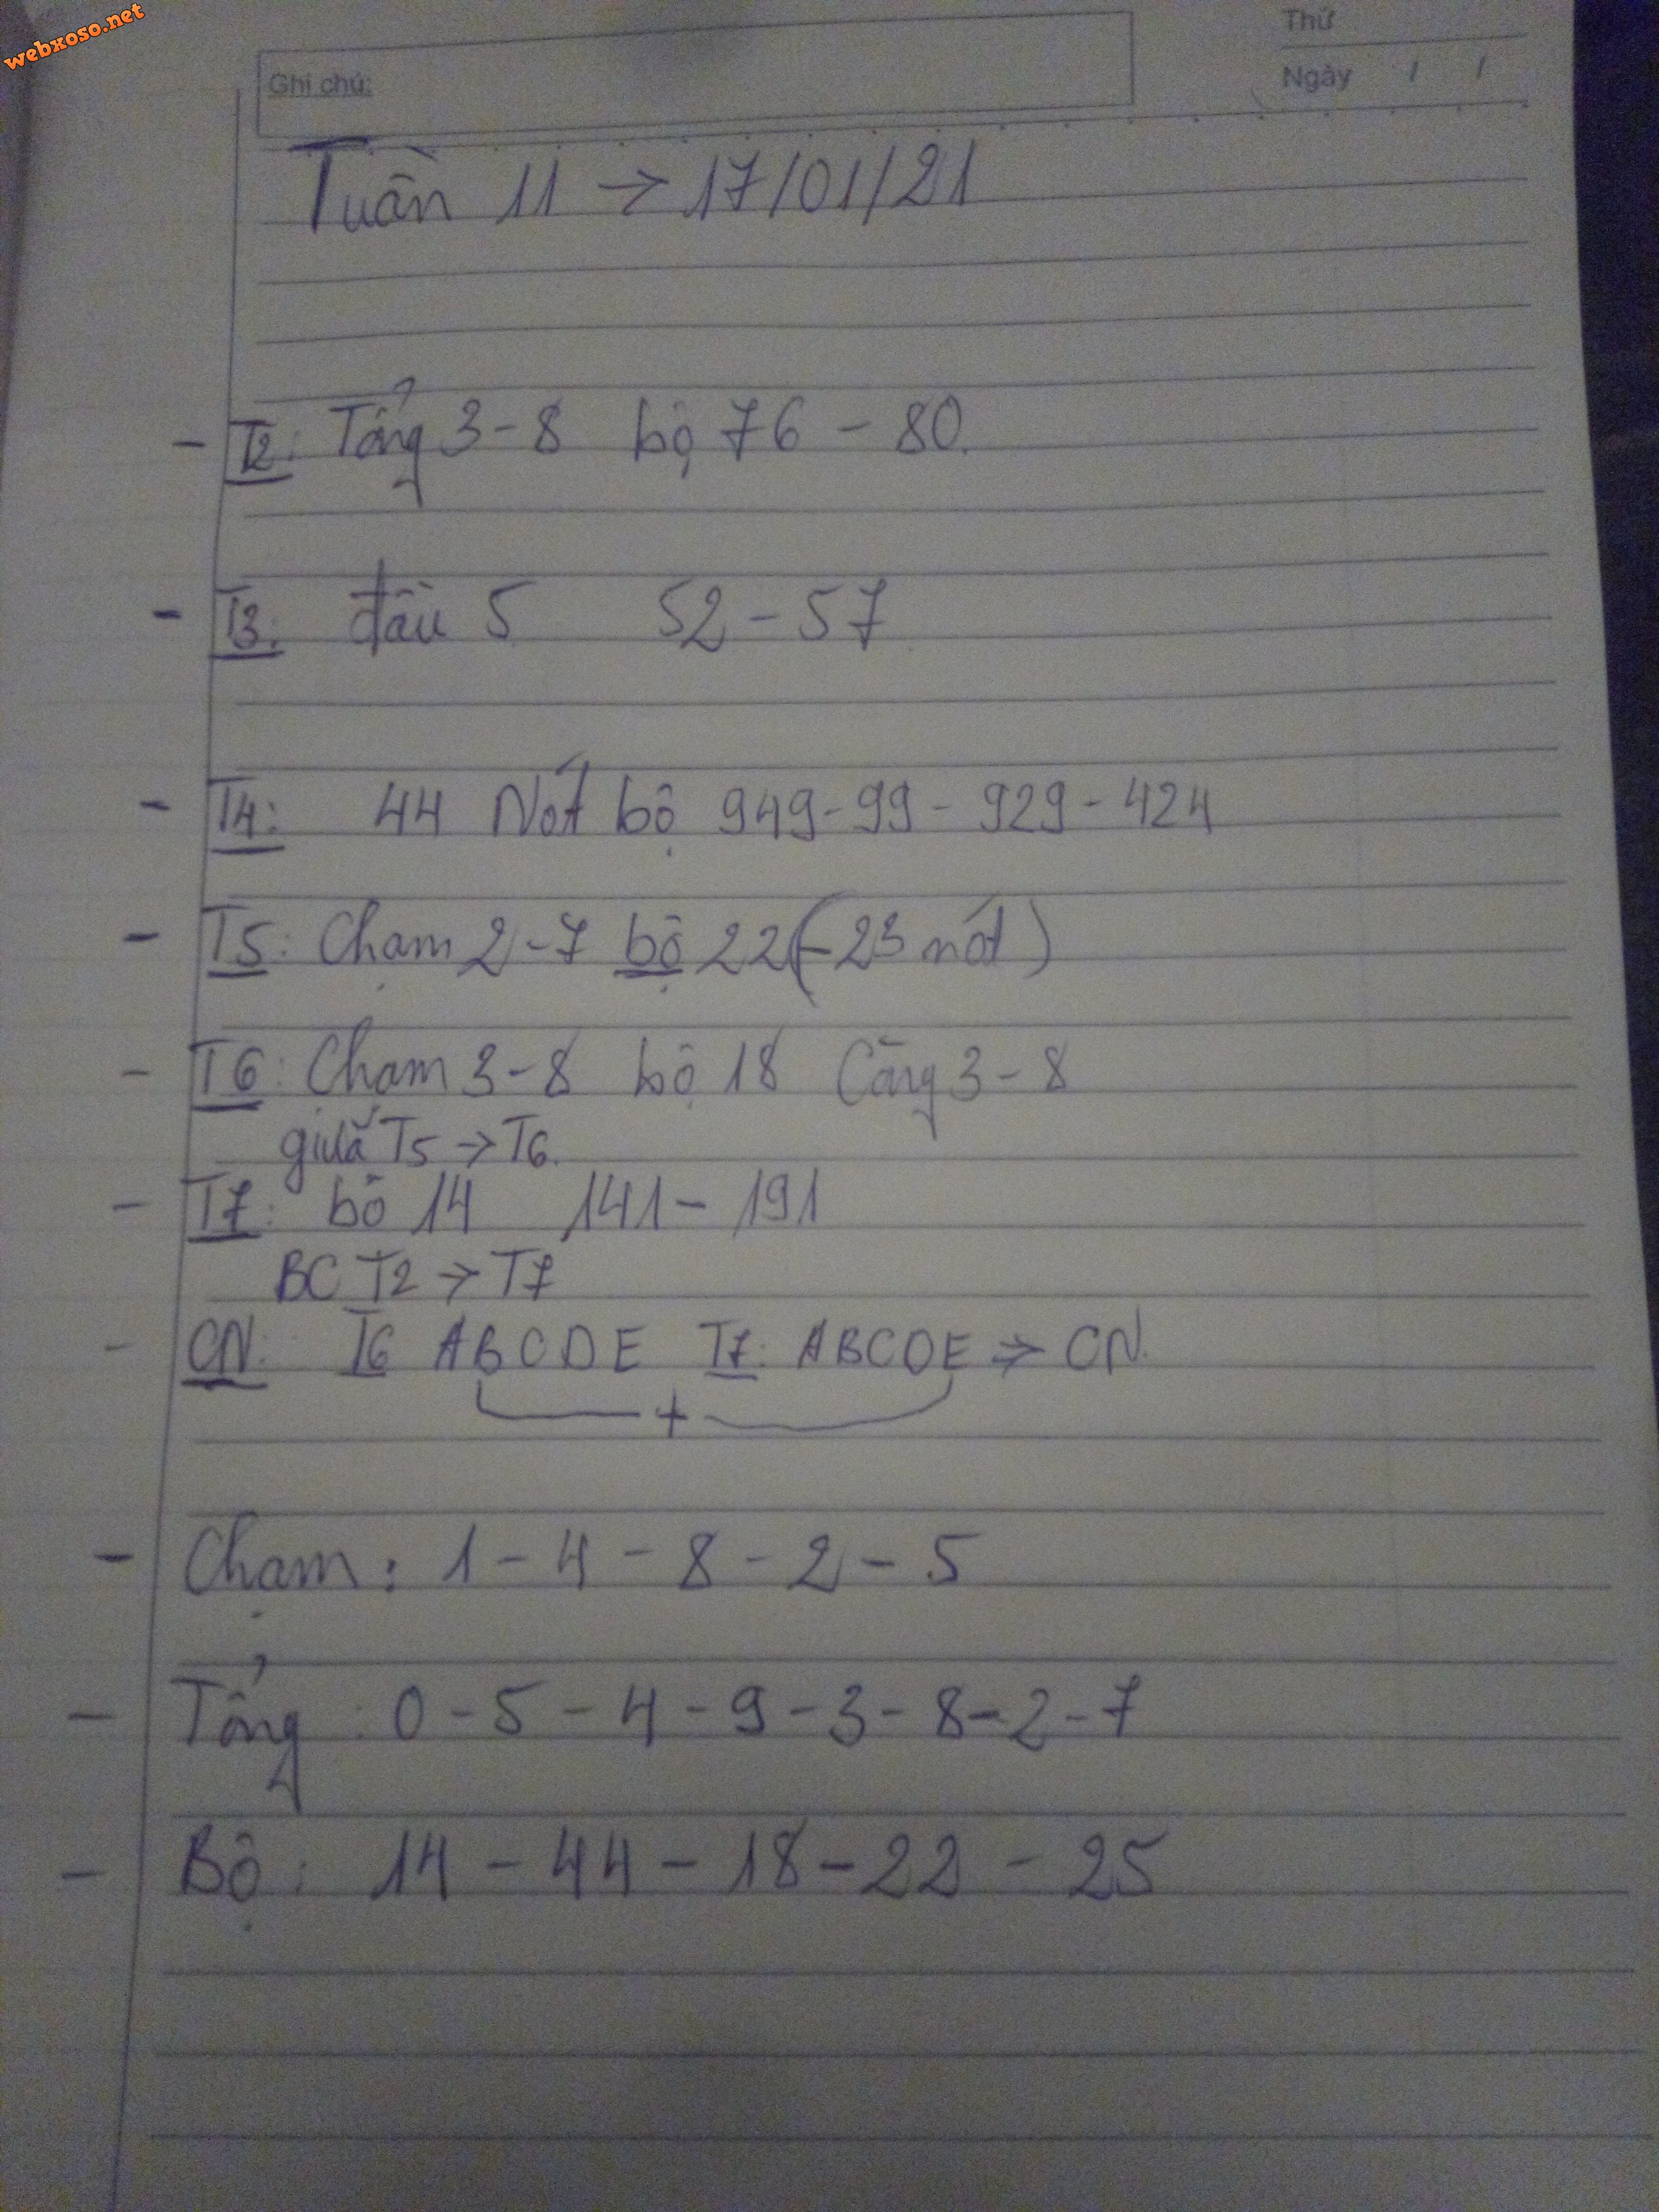 webxoso.net
Thứ
Ghi chú:
Ngày / /
Tuần 11 → 17/01/21
- T2: Tổng 3-8 bộ 76 - 80.
- T3: đầu 5 52 - 57
- T4: 44 Nớt bộ 949-99- 929- 424
- T5: Chạm 2-7 bộ 22(-23 nớt)
- T6: Chạm 3-8 bộ 18 Càng 3-8
giữa T5 → T6.
- T7: bộ 14 141 - 191
BC T2 → T7
- CN: T6 ABCDE T7: ABCDE => CN.
+
- Chạm: 1 - 4 - 8 - 2 - 5
- Tổng: 0 - 5 - 4 - 9 - 3 - 8 - 2 - 7
- Bộ: 14 - 44 - 18 - 22 - 25